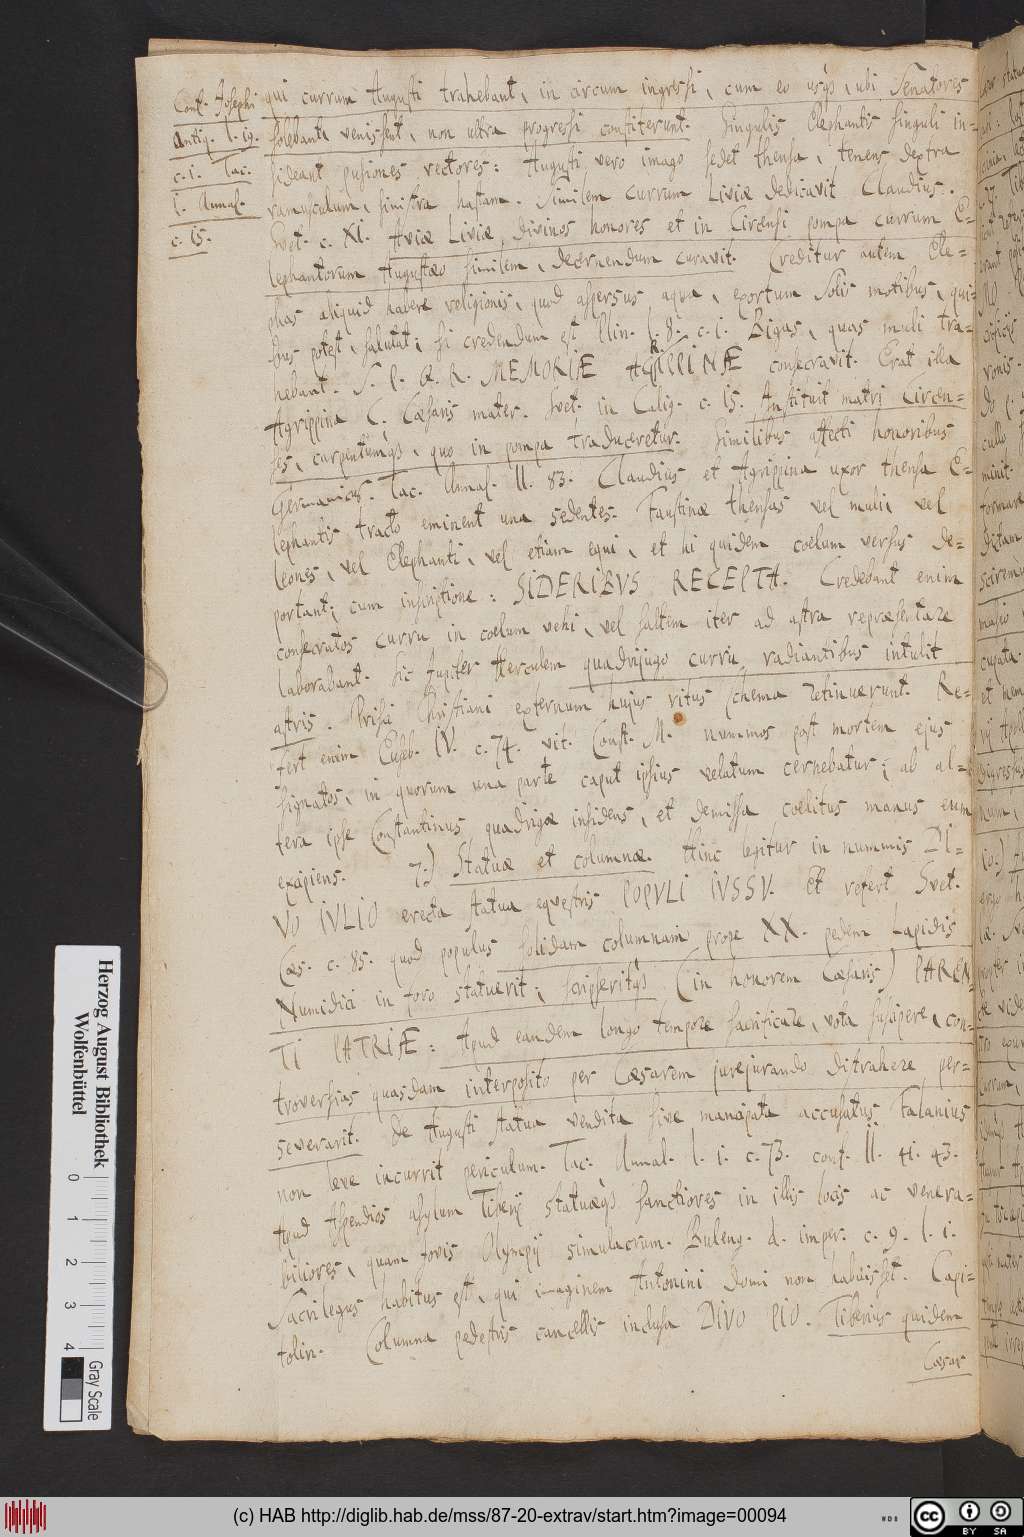 Conf. Josephi
Antiq. l. 19.
c. 1. Tac.
1. Annal.
c. 15.
qui currum Augusti trahebant, in circum ingressi, cum eo usqs, ubi Senatores
solebant, venissent, non ultra progressi constiterunt. Singulis Elephantis singuli in-
sideant pusiones vectores: Augusti vero imago sedet thensa, tenens dextra
ramusculum, sinistra hastam. Similem currum Liviæ dedicavit Claudius.
Svet. c. XI. Aviæ Liviæ divinos honores et in Circensi pompa currum E-
lephantorum Augustæo similem, decernendum curavit. Creditur autem Ele-
phas aliquid habere religionis, quod aspersus aqua, exortum Solis motibus, qui-
bus potest, salutat; si credendum est Plin. l. 8. c. 1. Bigas, quas muli tra-
hebant. S. P. Q. R. MEMORIÆ AGRIPPINÆ consecravit. Erat illa
Agrippina C. Cæsaris mater. Svet. in Calig. c. 15. Instituit matri Circen-
ses, carpentumqs, quo in pompa traduceretur. Similibus affecti honoribus
Germanicus. Tac. Annal. II. 83. Claudius et Agrippina uxor thensa E-
lephantis tracto eminent una sedentes. Faustinæ thensas vel muli, vel
leones, vel Elephanti, vel etiam equi, et hi quidem coelum versus de-
portant; cum inscriptione: SIDERIBVS RECEPTA. Credebant enim
consecratos curru in coelum vehi, vel saltem iter ad astra repræsentare
laborabant. Sic Jupiter Herculem quadrijugo curru radiantibus intulit
astris. Prisci Christiani externum hujus ritus schema retinuerunt. Re-
fert enim Euseb. IV. c. 74. vit. Const. M. nummos post mortem ejus
signatos, in quorum una parte caput ipsius velatum cernebatur; ab al-
tera ipse Constantinus quadrigæ insidens, et demissa coelitus manus eum
excipiens. 7.) Statuæ et columnæ. Hinc legitur in nummis DI-
VO IVLIO erecta statua equestris POPVLI IVSSV. Et refert Svet.
Cæs. c. 85. quod populus solidam columnam prope XX. pedem Lapidis
Numidici in foro statuerit; scripseritqs (in honorem Cæsaris) PAREN-
TI PATRIÆ: Apud eandem longo tempore sacrificare, vota suscipere, con-
troversias quasdam interposito per Cæsarem jurejurando distrahere, per-
severarit. De Augusti statua vendita sive mancipata accusatus Falanius
non leve incurrit periculum. Tac. Annal. l. 1. c. 73. conf. II. 41. 43.
Apud Aspendios asylum Tiberij statuæqs sanctiores in illis locis ac venera-
biliores, quam Jovis Olympij simulacrum. Buleng. d. imper. c. 9. l. 1.
Sacrilegus habitus est, qui imaginem Antonini domi non habuisset. Capi-
tolin. Columna pedestris cancellis inclusa DIVO PIO. Tiberius quidem
Cæsar
Herzog August Bibliothek
Wolfenbüttel
0
1
2
3
4
Gray Scale
(c) HAB http://diglib.hab.de/mss/87-20-extrav/start.htm?image=00094
cc BY SA